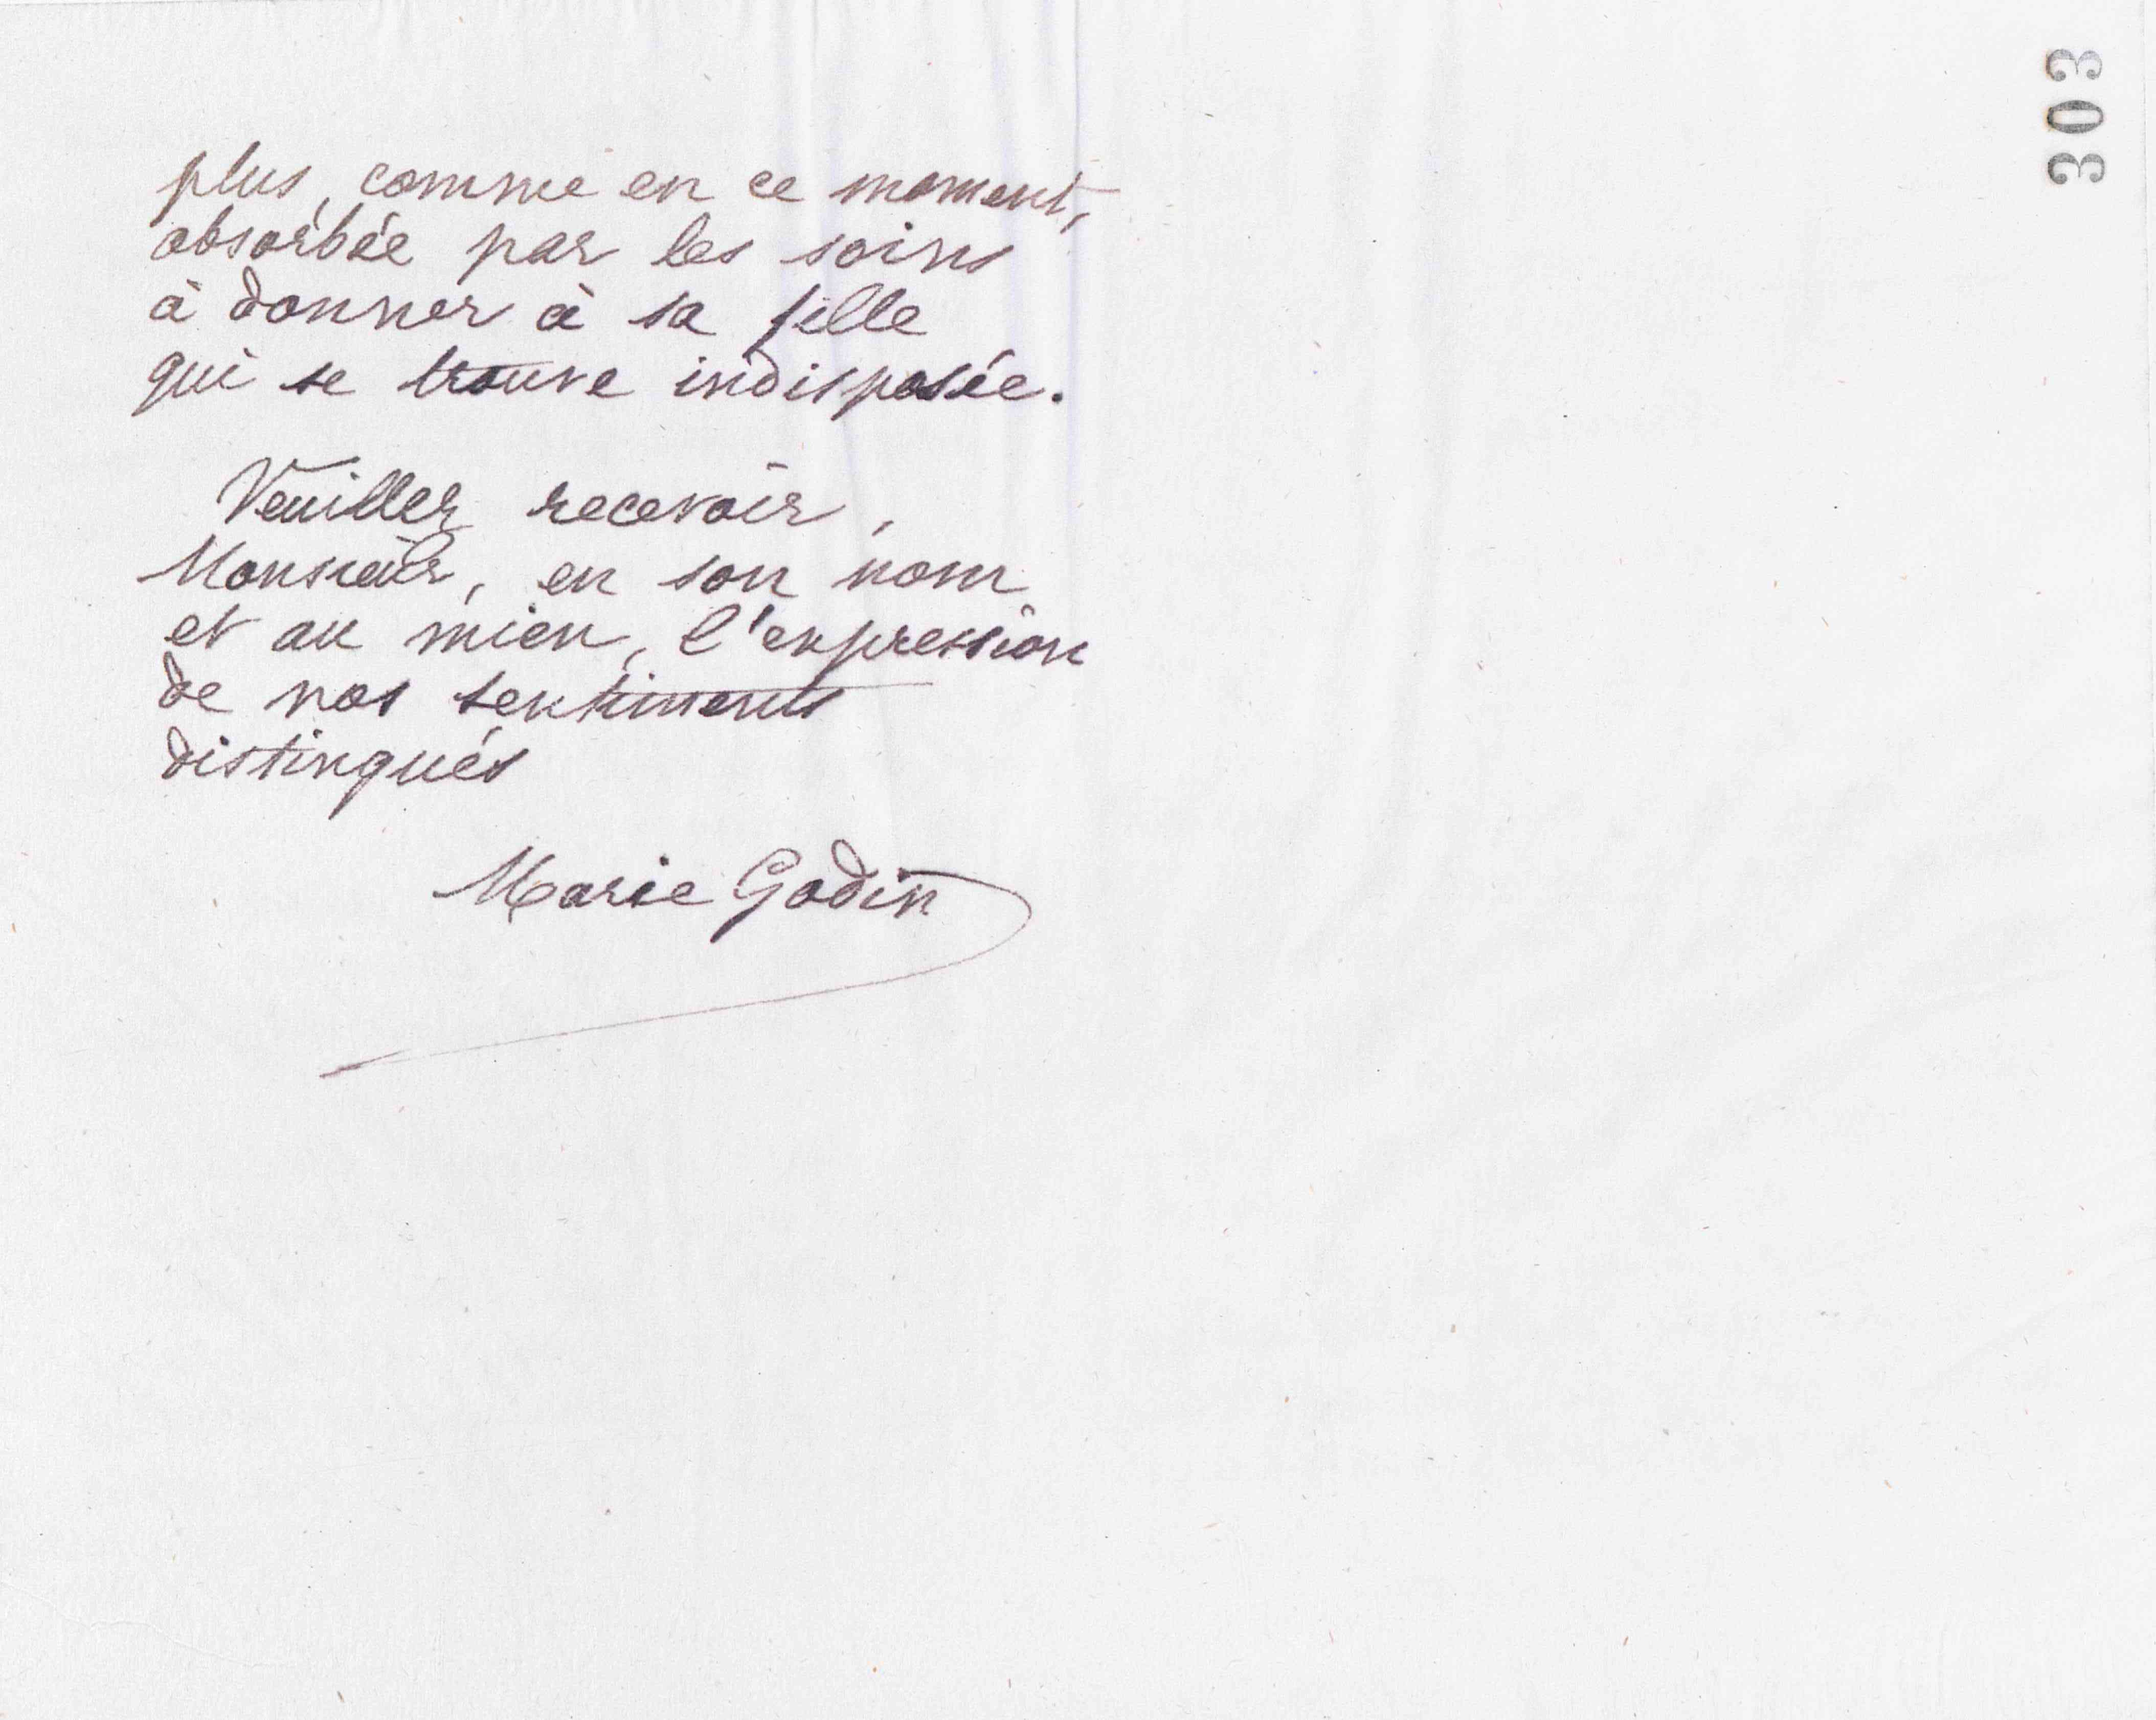 303
plus, comme en ce moment,
absorbée par les soins
à donner à sa fille
qui se trouve indisposée.
Veuillez recevoir,
Monsieur, en son nom
et au mien, l'expression
de nos sentiments
distingués
Marie Godin